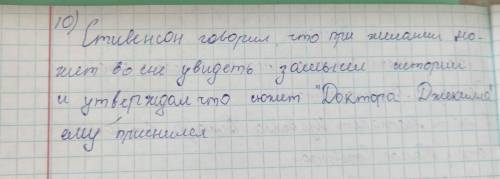 10)
Стивенсон говорил, что при желании мо-
жет во сне увидеть замысел истории
и утверждал что сюжет "Доктора Джекила"
ему приснился